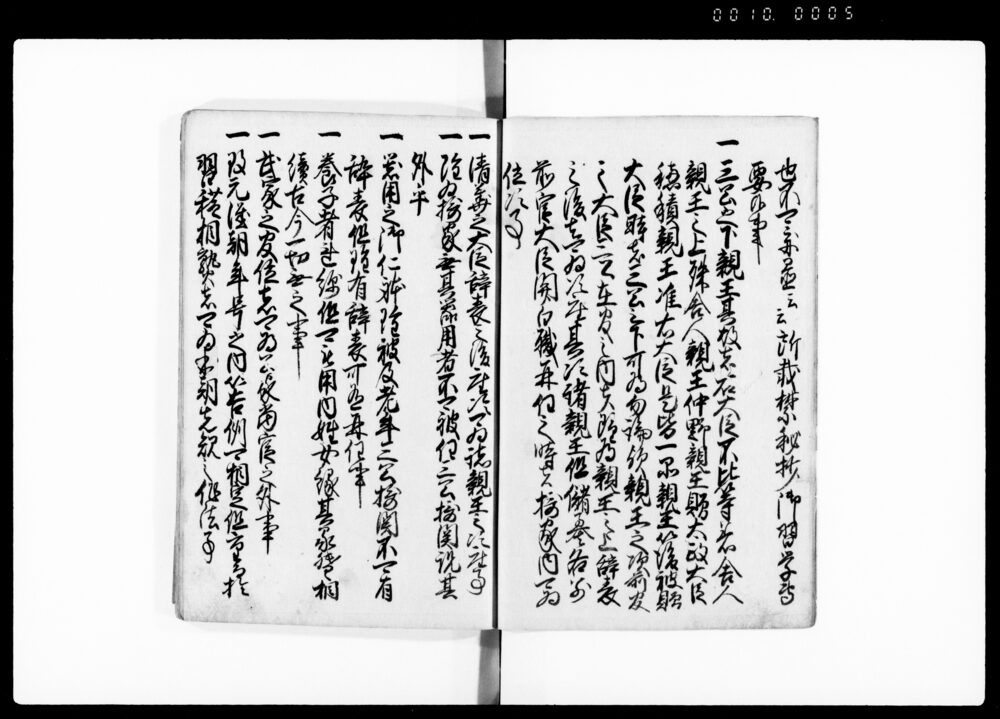 0010.0005
也不可弃置云云所載禁秘抄御習学専
要候事
一三公之下親王其故者右大臣不比等着舎人
親王之上殊舎人親王仲野親王贈太政大臣
穂積親王准右大臣是皆一品親王以後被贈
大臣時者三公之下可為勿論歟親王之次前官
之大臣三公在官之内者為親王之上辞表
之後者可為次座其次諸親王但儲君各別
前官大臣関白職再任之時者摂家内可為
位次事
一清華之大臣辞表之後座次可為諸親王之次座事
一雖為摂家無其器用者不可被任三公摂関況其
外乎
一器用之御仁躰雖被及老年三公摂関不可有
辞表但雖有辞表可有再任事
一養子者連綿但可被用同姓女縁其家督相
続古今一切無之事
一武家之官位者可為公家当官之外事
一改元漢朝年号之内以吉例可相定但重而於
習礼相熟者可為本朝先規之作法事